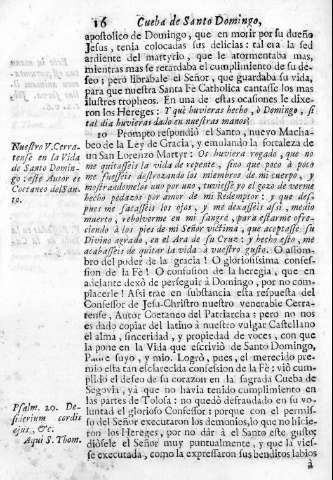 16 Cueba de Santo Domingo,
apostolico de Domingo, que en morir por su dueño
Jesus, tenia colocadas sus delicias: tal era la sed
ardiente del martyrio, que le atormentaba mas,
mientras mas se retardaba el cumplimiento de su de-
seo; pero librabale el Señor, que guardaba su vida,
para que nuestra Santa Fè Catholica cantasse los mas
ilustres tropheos. En una de estas ocasiones le dixe-
ron los Hereges: Y què huvieras hecho, ò Domingo, si
tal dia huvieras dado en nuestras manos?
10 Prompto respondiò el Santo, nuevo Macha-
beo de la Ley de Gracia, y emulando la fortaleza de
un San Lorenzo Martyr: Os huviera rogado, que no
me quitasseis la vida de repente, sino que poco à poco
me fuesseis destrozando los miembros de mi cuerpo, y
mostrandomelos uno por uno, tuviesse yo el gozo de verme
hecho pedazos por amor de mi Redemptor: y que des-
pues me sacasseis los ojos, y me dexasseis assi, medio
muerto, rebolverme en mi sangre, para estarme ofre-
ciendo à los pies de mi Señor victima, que aceptasse su
Divino agrado, en el Ara de su Cruz: y hecho esto, me
acabasseis de quitar la vida à vuestro gusto. O assom-
bro del poder de la gracia! O gloriosissima confes-
sion de la Fè! O confusion de la heregia, que en
adelante dexò de perseguir à Domingo, por no com-
placerle! Assi trae en substancia esta respuesta del
Confessor de Jesu-Christo nuestro venerable Cerra-
tense, Autor Coetaneo del Patriarcha: pero no nos
es dado copiar del latino à nuestro vulgar Castellano
el alma, sinceridad, y propiedad de voces, con que
la pone en la Vida que escriviò de Santo Domingo,
Padre suyo, y mio. Logrò, pues, el merecido pre-
mio esta tan esclarecida confession de la Fè: viò cum-
plido el deseo de su corazon en la sagrada Cueba de
Segovia, yà que no havia tenido cumplimiento en
las partes de Tolosa: no quedò defraudado en su vo-
luntad el glorioso Confessor; porque con el permis-
so del Señor executaron los demonios, lo que no hicie-
ron los Hereges, por no dàr à el Santo este gusto;
diòsele el Señor muy puntualmente, y que la vies-
se executada, como la expressaron sus benditos labios
à
Nuestro V. Cerra-
tense en la Vida
de Santo Domin-
go: este Autor es
Coetaneo del San-
to.
Psalm. 20. De-
siderium cordis
ejus, &c.
Aqui S. Thom.